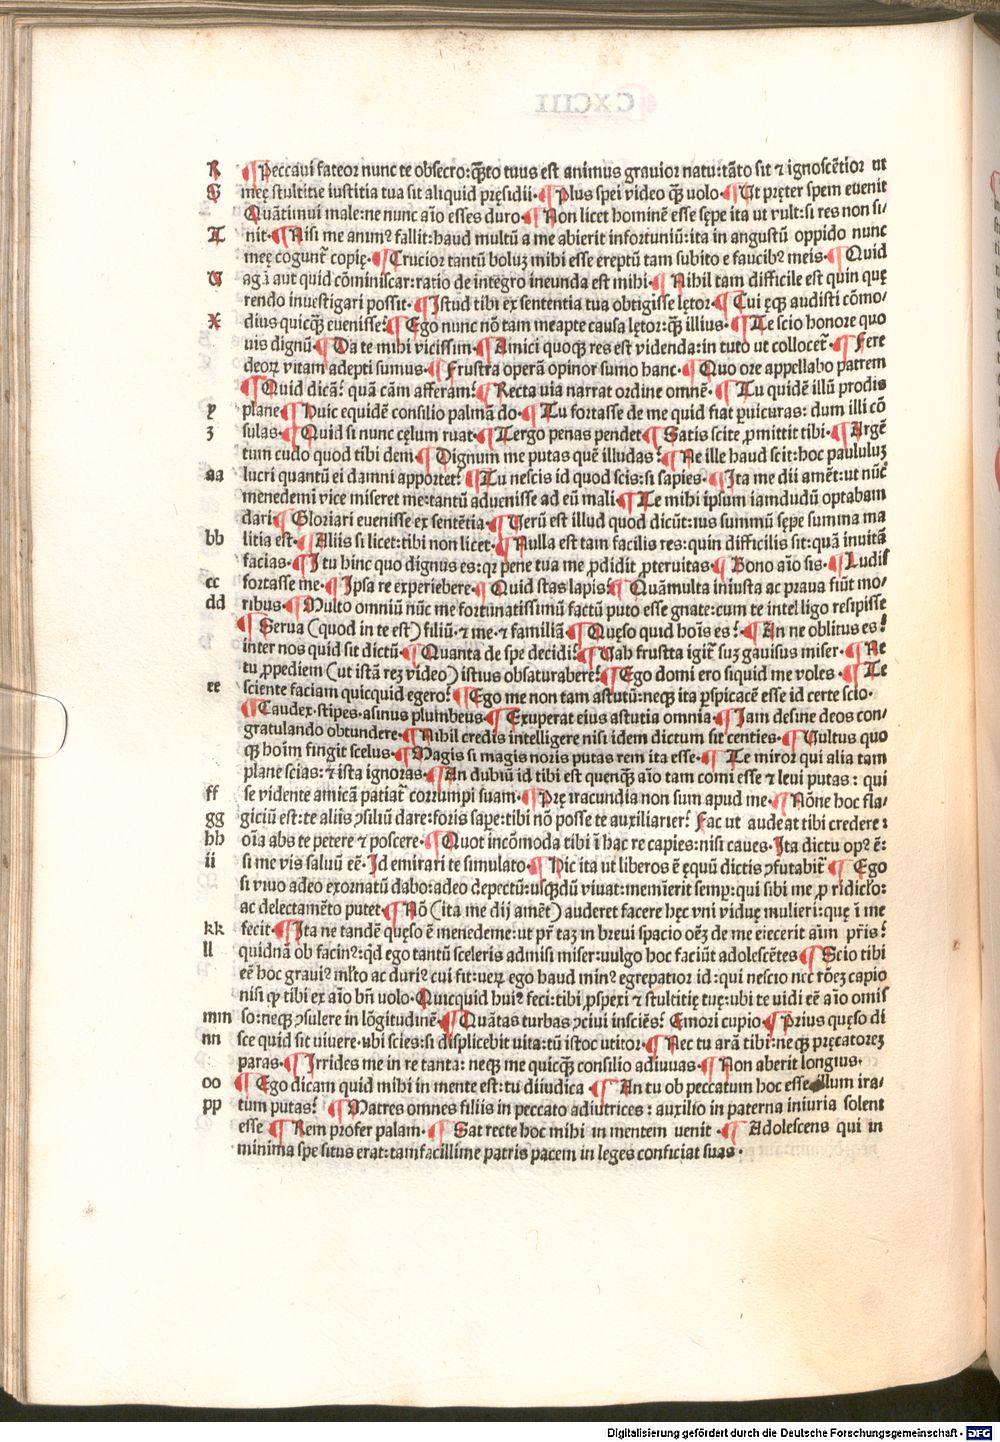 R ¶ Peccavi fateor nunc te obsecro: q̄̃to tuus est animus gravior natu: tãto sit ⁊ ignoscẽtior ut
S meę stultitię iustitia tua sit aliquid pręsidii. ¶ Plus spei video q̃ȝ uolo. ¶ Ut pręter spem euenit
Quãtimui male: ne nunc aĩo esses duro. ¶ Non licet hominẽ esse sępe ita ut vult: si res non si/
T nit. ¶ Nisi me animꝰ fallit: haud multũ a me abierit infortuniũ: ita in angustũ oppido nunc
meę cogunt᷑ copię. ¶ Crucior tantũ boluȝ mihi esse ereptũ tam subito e faucibꝰ meis. ¶ Quid
V agã aut quid cõminiscar: ratio de integro ineunda est mihi. ¶ Nihil tam difficile est quin quę
rendo inuestigari possit. ¶ Istud tibi ex sententia tua obtigisse lętor. ¶ Cui ęqȝ audisti cõmo/
X dius quicq̃ȝ euenisse? ¶ Ego nunc nõ tam meapte causa lętor: q̃ȝ illius. ¶ Te scio honore quo
uis dignũ. ¶ Da te mihi vicissim. ¶ Amici quoqȝ res est videnda: in tuto ut collocet᷑. ¶ Fere
deoꝝ vitam adepti sumus. ¶ Frustra operã opinor sumo hanc. ¶ Quo ore appellabo patrem
¶ Quid dicã? quã cãm afferam? ¶ Recta via narrat ordine omnẽ. ¶ Tu quidẽ illũ prodis
y plane ¶ Huic equidẽ consilio palmã do. ¶ Tu fortasse de me quid fiat ꝑuicuras: dum illi cõ
z sulas. ¶ Quid si nunc cęlum ruat. ¶ Tergo penas pendet ¶ Satis scite ꝓmittit tibi. ¶ Argẽ
tum cudo quod tibi dem. ¶ Dignum me putas quẽ illudas? ¶ Ne ille haud scit: hoc paululuȝ
aa lucri quantũ ei damni apportet? ¶ Tu nescis id quod scis: si sapies. ¶ Ita me dii amẽt: ut nũc
menedemi vice miseret me: tantũ aduenisse ad eũ mali ¶ Te mihi ipsum iamdudũ optabam
dari ¶ Gloriari euenisse ex sentẽtia. ¶ Uerũ est illud quod dicũt: ius summũ sępe summa ma
bb litia est. ¶ Aliis si licet: tibi non licet. ¶ Nulla est tam facilis res: quin difficilis sit: quã inuitã
facias. ¶ I tu hinc quo dignus es: qꝛ pene tua me ꝑdidit ꝓteruitas. ¶ Bono aĩo sis. ¶ Ludis
cc fortasse me. ¶ Ipsa re experiebere. ¶ Quid stas lapis? ¶ Quãmulta iniusta ac praua fiũt mo/
dd ribus. ¶ Multo omniũ nũc me fortunatissimũ factũ puto esse gnate: cum te intelligo resipisse
¶ Serua (quod in te est) filiũ. ⁊ me. ⁊ familiã ¶ Quęso quid hoĩs es? ¶ An ne oblitus es?
inter nos quid sit dictũ. ¶ Quanta de spe decidi? ¶ Uah frustta igit᷑ suȝ gauisus miser. ¶ Ne
tu ꝓpediem (ut istã reȝ video) istius obsaturabere? ¶ Ego domi ero siquid me voles. ¶ Te
ee sciente faciam quicquid egero? ¶ Ego me non tam astutũ: neqȝ ita ꝑspicacẽ esse id certe scio.
¶ Caudex. stipes. asinus plumbeus. ¶ Exuperat eius astutia omnia. ¶ Iam desine deos con/
gratulando obtundere. ¶ Nihil credis intelligere nisi idem dictum sit centies. ¶ Uultus quo
qȝ hoĩm fingit scelus. ¶ Magis si magis noris putas rem ita esse. ¶ Te miror qui alia tam
plane scias: ⁊ ista ignoras. ¶ An dubiũ id tibi est quenq̃ȝ aĩo tam comi esse ⁊ leui putas: qui
ff se vidente amicã patiat᷑ corrumpi suam. ¶ Prę iracundia non sum apud me. ¶ Nõne hoc fla/
gg giciũ est: te aliis ↄsiliũ dare: foris sape: tibi nõ posse te auxiliarier? Fac ut audeat tibi credere:
hh oĩa abs te petere ⁊ poscere. ¶ Quot incõmoda tibi ĩ hac re capies: nisi caues. Ita dictu opꝰ ẽ:
ii si me vis saluũ eẽ. Id emirari te simulato. ¶ Hic ita ut liberos ẽ ęquũ dictis ↄfutabit᷑ ¶ Ego
si viuo adeo exornatũ dabo: adeo depectũ: usq̃ȝdũ vivat: meminerit semꝑ: qui sibi me ꝓ ridiclo:
ac delectamẽto putet. ¶ Nõ (ita me dij amẽt) auderet facere hęc vni viduę mulieri: quę ĩ me
kk fecit. ¶ Ita ne tandẽ quęso ẽ menedeme: ut pr̃ taȝ in brevi spacio oẽȝ de me eiecerit aĩm pr̃is?
ll quidnã ob facinꝰ: q̇d ego tantũ sceleris admisi miser: uulgo hoc faciũt adolescẽtes ¶ Scio tibi
eẽ hoc graviꝰ ml̃to ac duriꝰ cui fit: ueꝝ ego haud minꝰ egre patior id: qui nescio nec rõeȝ capio
nisi ꝙ tibi ex aĩo bñ uolo. Quicquid huiꝰ feci: tibi ꝓspexi ⁊ stultitię tuę: ubi te uidi eẽ aĩo omis
mm so: neqȝ ↄsulere in lõgitudinẽ. ¶ Quãtas turbas ↄciui insciẽs? Emori cupio. ¶ Prius quęso di
nn sce quid sit uiuere. ubi scies: si displicebit vita: tũ istoc utitor. ¶ Nec tu arã tibi: neqȝ pręcatoreȝ
paras. ¶ Irrides me in re tanta: neqȝ me quicq̃ȝ consilio adiuuas. ¶ Non aberit longius.
oo ¶ Ego dicam quid mihi in mente est: tu diiudica. ¶ An tu ob peccatum hoc esse illum ira/
pp tum putas? ¶ Matres omnes filiis in peccato adiutrices: auxilio in paterna iniuria solent
esse ¶ Rem profer palam. ¶ Sat recte hoc mihi in mentem uenit. ¶ Adolescens qui in
minima spe situs erat: tam facillime patris pacem in leges conficiat suas.
Digitalisierung gefördert durch die Deutsche Forschungsgemeinschaft - DFG